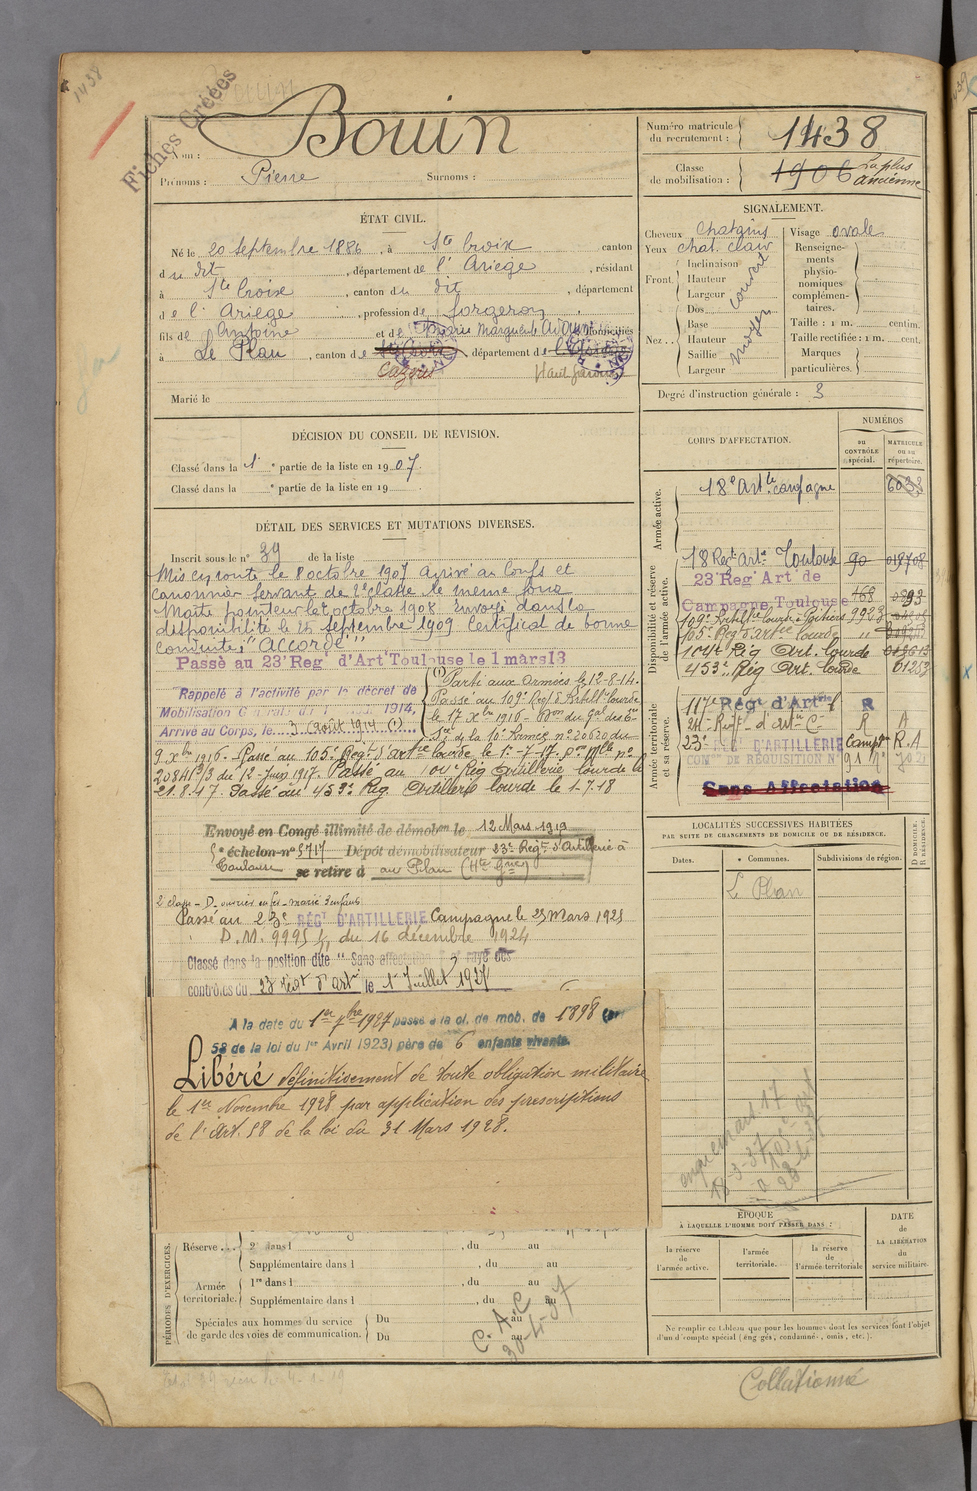 1438
Fiches Créées
Bouin
Nom :
Prénoms : Pierre Surnoms :
Numéro matricule du recrutement : 1438
Classe de mobilisation : 1906 La plus ancienne
ÉTAT CIVIL.
Né le 20 septembre 1886, à Ste Croix canton
du dit, département de l'Ariège, résidant
à Ste Croix, canton du dit, département
de l'Ariège, profession de forgeron
fils de Antoine et de Marguerite domiciliés
à Le Plan, canton de département de
Cazères Haute Garonne
Marié le
DÉCISION DU CONSEIL DE REVISION.
Classé dans la 1e partie de la liste en 1907.
Classé dans la e partie de la liste en 19
DÉTAIL DES SERVICES ET MUTATIONS DIVERSES.
Inscrit sous le n° 39 de la liste
Mis en route le 8 octobre 1907 arrivé au corps et
canonnier servant de 2e classe le même jour
Maître pointeur le 1 octobre 1908 Envoyé dans la
disponibilité le 25 septembre 1909 Certificat de bonne
conduite "accordé"
Passé au 23e Regt d'Art Toulouse le 1 mars 13
Rappelé à l'activité par le décret de
Mobilisation Générale du 1 1914.
Arrivé au Corps, le 3 août 1914 (1)
(1) Parti aux armées le 12-8-14.
Passé au 109e Regt d'Artillie lourde
le 17 Xbre 1916 - du Gal des
de la 10e Armée n° 20620 du
9 Xbre 1916 - Passé au 105e Regt d'artrie lourde le 1e-7-17. Don Mlle n°
20841 3/3 du 12-Juin 1917. Passé au 104e Rég Artillerie lourde le
21.8.17. Passé au 453e Rég Artillerie lourde le 1-7-18
Envoyé en Congé illimité de démobon le 12 Mars 1919
5e échelon-n° 3717 Dépôt démobilisateur 23e Regt d'Artillerie à
Toulouse se retire à au Plan (Hte Gne)
2e classe - D - ouvrier en fer - marié 3 enfants
Passé au 23e RÉGT D'ARTILLERIE Campagne le 25 Mars 1925
D.M. 9995 du 16 décembre 1924
Classé dans la position dite "Sans affectation" rayé des
contrôles du 23 régt d'artie le 1e Juillet 1927
A la date du 1er 7bre 1927 passé à la cl. de mob. de 1898 (art
58 de la loi du 1er Avril 1923) père de 6 enfants vivants.
Libéré définitivement de toute obligation militaire
le 1er Novembre 1928 par application des prescriptions
de l'Art. 58 de la loi du 31 Mars 1928.
PÉRIODES D'EXERCICES.
Réserve... 2e dans l , du au
Supplémentaire dans l , du au
Armée territoriale. 1re dans l , du au
Supplémentaire dans l , du au
Spéciales aux hommes du service de garde des voies de communication. Du au
Du au
C.A.C
30-4-37
SIGNALEMENT.
Cheveux Chatains Visage ovale
Yeux chat. clair
Front Inclinaison Hauteur Largeur couvert
Nez Dos Base Hauteur Saillie Largeur moyen
Renseignements physionomiques complémentaires.
Taille : 1 m. centim.
Taille rectifiée : 1 m. cent.
Marques particulières.
Degré d'instruction générale : 3
CORPS D'AFFECTATION.
NUMÉROS
DU CONTRÔLE spécial.
MATRICULE OU AU répertoire.
Armée active.
18e Artie campagne 6033
Disponibilité et réserve de l'armée active.
18 Regt Arte Toulouse 90
23e Reg Art de
Campagne Toulouse 168
109e Artillie lourde Poitiers
105e Regt d'artie lourde "
104e Rég Art. lourde
453e Rég Art. lourde 01253
Armée territoriale et sa réserve.
117e Régt d'Artie R
24e Regt d'artie Cie R A
23e REGT D'ARTILLERIE Campe R.A
COMon DE REQUISITION N°
Sans Affectation
LOCALITÉS SUCCESSIVES HABITÉES
PAR SUITE DE CHANGEMENTS DE DOMICILE OU DE RÉSIDENCE.
Dates. Communes. Subdivisions de région. D DOMICILE. R RÉSIDENCE.
Le Plan
18-3-37
ÉPOQUE
À LAQUELLE L'HOMME DOIT PASSER DANS :
la réserve de l'armée active.
l'armée territoriale.
la réserve de l'armée territoriale
DATE de LA LIBÉRATION du service militaire.
Ne remplir ce tableau que pour les hommes dont les services font l'objet
d'un décompte spécial (engagés, condamnés, omis, etc.).
Collationné